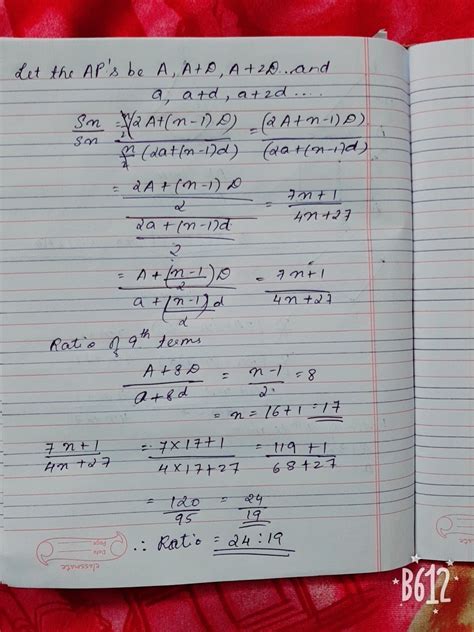 Let the AP's be A, A+D, A+2D...and
a, a+d, a+2d ....
Sn/sn = n/2(2A+(n-1)D)/n/2(2a+(n-1)d) = (2A+n-1)D)/(2a+(n-1)d)
= 2A+(n-1)D/2/2a+(n-1)d/2 = 7n+1/4n+27
= A+(n-1/2)D/a+(n-1)/2 d = 7n+1/4n+27
Ratio of 9th terms
A+8D/a+8d = n-1/2 = 8
= n = 16+1 = 17
7n+1/4n+27 = 7×17+1/4×17+27 = 119+1/68+27
= 120/95 = 24/19
∴ Ratio = 24:19
classmate
Date
Page
B612